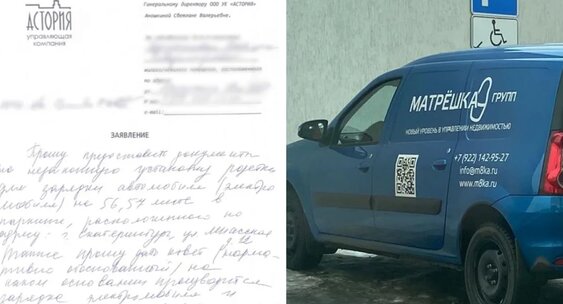 АСТОРИЯ
управляющая
компания
Генеральному Директору ООО УК «АСТОРИЯ»
Аношкиной Светлане Валерьевне,
e-mail:
ЗАЯВЛЕНИЕ
Прошу предоставить документы
на незаконную установку розетки
для зарядки автомобиля (электро
мобиля) на 56, 57 м/м в
паркинге, расположенного по
адресу: г. Екатеринбург, ул.
Также прошу дать ответ (норма-
тивно обоснованный) на
каком основании производится
зарядка электромобиля
МАТРЁШКА
ГРУПП
НОВЫЙ УРОВЕНЬ В УПРАВЛЕНИИ НЕДВИЖИМОСТЬЮ
+7 (922) 142-95-27
info@m8ka.ru
www.m8ka.ru